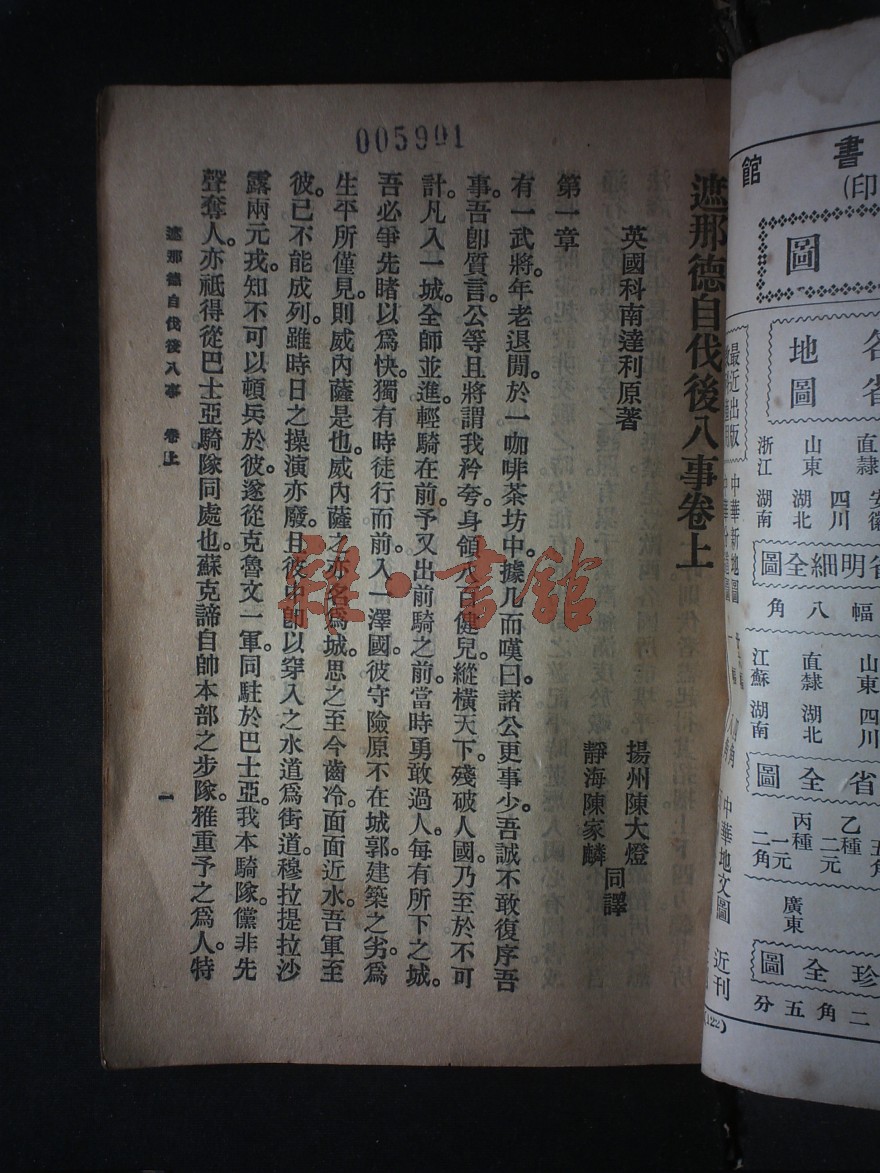 005901
遮那德自伐後八事卷上
英國科南達利原著
揚州陳大燈
靜海陳家麟
同譯
第一章
有一武將。年老退閒。於一咖啡茶坊中。據几而嘆曰。諸公更事少。吾誠不敢復序吾
事。吾卽質言。公等且將謂我矜夸。身領八百健兒。縱橫天下。殘破人國。乃至於不可
計。凡入一城。全師並進。輕騎在前。予又出前騎之前。當時勇敢過人。每有所下之城。
吾必爭先睹以爲快。獨有時徒行而前。入一澤國。彼守險原不在城郭。建築之劣。爲
生平所僅見。則威內薩是也。威內薩之亦名爲城。思之至今齒冷。面面近水。吾軍至
彼。已不能成列。雖時日之操演亦廢。且彼中卽以穿入之水道爲街道。穆拉提拉沙
露兩元戎。知不可以頓兵於彼。遂從克魯文一軍。同駐於巴士亞。我本騎隊。儻非先
聲奪人。亦祗得從巴士亞騎隊同處也。蘇克諦自帥本部之步隊。雅重予之爲人。特
遮那德自伐後八事 卷上
一
雜·書館
書館
印)
圖
各省
地圖
直隸 安徽
山東 四川
湖北
浙江 湖南
省明細全圖
幅八角
最近出版
中華新地圖
山東 四川
直隸 湖北
江蘇 湖南
省全圖
五角
乙種 二元
丙種 一元
二角
廣東
珍全圖
二角五分
中華地文圖
近刊
(122)